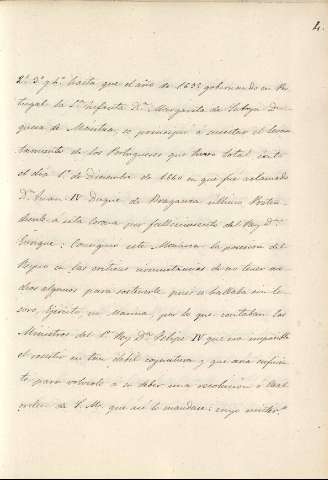 4.
hasta que el año de 1635 gobernando en Por-
tugal la Sra. Infanta Da. Margarita de Saboya Du-
quesa de Mantua, se principió a suscitar el levan-
tamiento de los Portugueses que tuvo total exito
el dia 1o. de diciembre de 1640 en que fué aclamado
Dn. Juan IV Duque de Braganza ultimo Preten-
diente á esta Corona por fallecimiento del Rey Dn.
Enrique: Consiguió este Monarca la posesion del
Reyno en las criticas circunstancias de no tener me-
dios algunos para sostenerle pues se hallaba sin te-
soro, Ejército, ni Marina, por lo que contaban los
Ministros del Sr. Rey Dn. Felipe IV que era imposible
el resistir en tan debil coyuntura y que era suficien-
te para volverle a su deber una resolucion ó Real
orden de S. M. que así lo mandase: cuyo